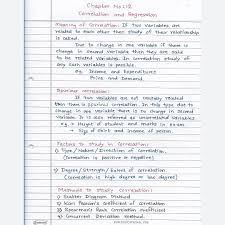 Chapter No: 12
Correlation and Regression
Meaning of Correlation: If Two Variables are
related to each other then study of their relationship
is called.
Due to change in one variables if there is
change in second variable then they are said
to be related variables. In correlation study of
any such variables is possible.
e.g. Income and Expenditure
Price and Demand.
Spurious correlation:
If two variables are not mutually related
then there is spurious correlation. In this type due to
change in one variable there is no change in second
variable. It is also referred as unrelated variables
e.g. → Height of student and marks in exam
→ Size of shirt and income of person.
Factors to study in Correlation:
1) Type/Nature/Direction of Correlation.
(Correlation is positive or negative)
2) Degree/Strength/Extent of correlation
(Correlation is high degree or low degree)
Methods to study Correlation:
1) Scatter Diagram Method
2) Karl Pearson's Coefficient of correlation
3) Spearman's Rank Correlation coefficient
4) Concurrent Deviation Method